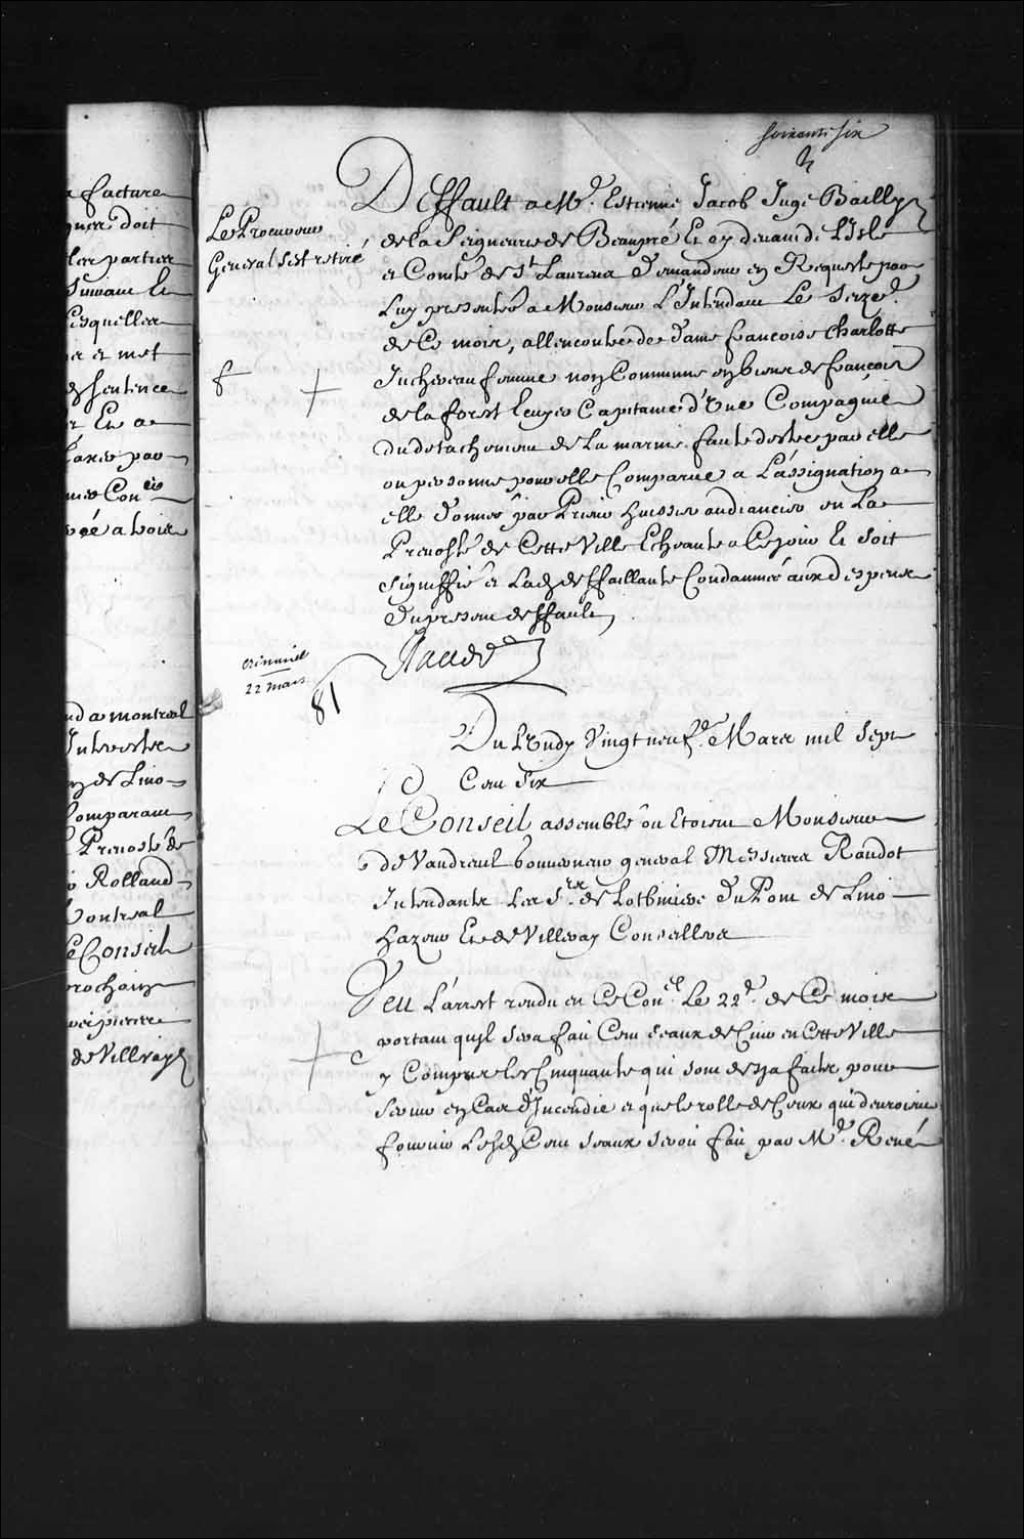 a facture
doit
les parties
suivant Et
lesquelles
er et met
sentence
Et a
par
Con.ers
a voir
nd a montreal
Intervenir
de Lino
Comparant
Prevosté de
Rolland
Contreal
Le Conseil
prochain
premier
de Villeray
soixante six
Le Procureur
General s'est retiré
Deffault a M.e Estienne Jacob Juge Bailly
de la Seigneurie de Beaupré Et cy devant de L'Isle
et Comté de St Laurens demandeur en Requeste par
Luy presentée a Monsieur L'Intendant Le seize.e
de Ce mois, allencontre de dame francoise charlotte
Juchereau femme non Commune en biens de francois
de la forest Escuyer Capitaine d'Une Compagnie
du detachement de La marine faute d'estre par elle
ou personne pour elle Comparue a L'assignation a
elle donnée par Prieur huissier audiancier en La
Prevosté de Cette Ville Escheante a Ce jour Et soit
signiffié et Lad. deffaillante Condamnée aux despens
du present deffault,
Raudot
criminel
22 mars
81
Du Lundy Vingt neuf.e Mars mil Sept
Cent Six
Le Conseil assemblé ou Etoient Monsieur
de Vaudreuil Gouverneur general Messieurs Raudot
Intendants Les S.rs de Lotbiniere DuPont de Lino
hazeur Et de Villeray Conseillers
Veu L'arrest rendu en Ce Con.el Le 22.e de Ce mois
portant qu'il sera fait Cent seaux de Cuir en Cette Ville
y Compris les Cinquante qui sont desja faits pour
servir en Cas d'Incendie et que le rolle de Ceux qui devroient
fournir Lesd. Cent seaux seroit fait par M.e René